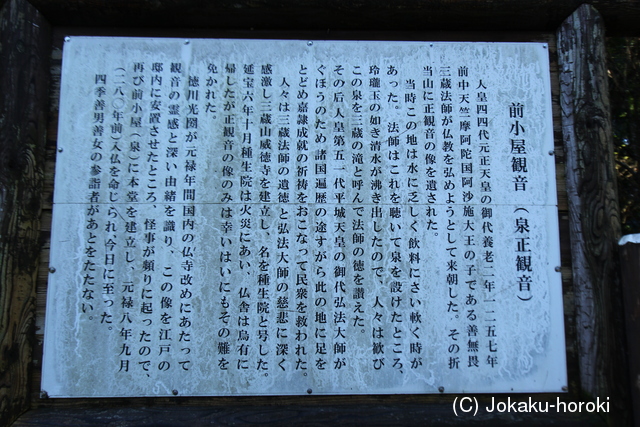 前小屋観音（泉正観音）
人皇四四代元正天皇の御代養老二年一二五七年
前中天竺摩阿陀国阿沙施大王の子である善無畏
三蔵法師が仏教を弘めようとして来朝した。その折
当山に正観音の像を遺された。
当時この地は水に乏しく飲料にさい軟く時が
あった。法師はこれを聴いて泉を設けたところ、
玲瓏玉の如き清水が沸き出したので、人々は歓び
この泉を三蔵の滝と呼んで法師の徳を讃えた。
その后人皇第五一代平城天皇の御代弘法大師が
ぐほうのため諸国遍歴の途すがら此の地に足を
とどめ嘉隷成就の祈祷をおこなって民衆を救われた。
人々は三蔵法師の遺徳と弘法大師の慈悲に深く
感激し三蔵山威徳寺を建立し、名を種生院と号した。
延宝六年十月種生院は火災にあい、仏舎は烏有に
帰したが正観音の像のみは幸いはいにもその難を
免かれた。
徳川光圀が元禄年間国内の仏寺改めにあたって
観音の霊感と深い由緒を識り、この像を江戸の
邸内に安置させたところ、怪事が頻りに起ったので、
再び前小屋（泉）に本堂を建立し、元禄八年九月
（二八〇年前）入仏を命じられ今日に至った。
四季善男善女の参詣者があとをたたない。
(C) Jokaku-horoki